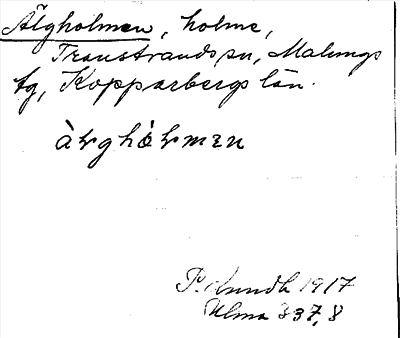 Älgholmen, holme,
Transtrands sn, Malungs
tg, Kopparbergs län.
àɬghòɬmɛn
1917
Ulma 337,8